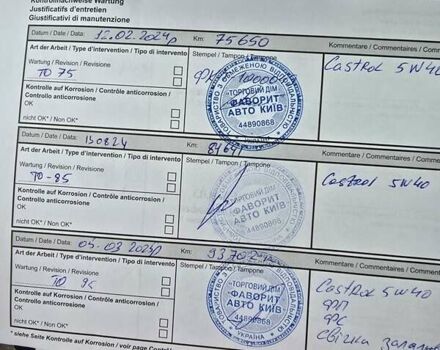 Kontrollnachweise Wartung
Justificatifs d'entretien
Giustificativi di manutenzione
Datum / Date / Data: 12.02.2024р Km: 75650
Art der Arbeit / Type d'intervention / Tipo di intervento
Stempel / Tampon / Timbro
Kommentare / Commentaires / Comm
Wartung / Revision / Revisione
ТО 75
Castrol 5W40
Kontrolle auf Korrosion / Contrôle anticorrosion /
Controllo anticorrosione
OK
nicht OK* / Non OK*
ТОВАРИСТВО З ОБМЕЖЕНОЮ ВІДПОВІДАЛЬНІСТЮ
"ТОРГОВИЙ ДІМ
ФАВОРИТ
АВТО КИЇВ"
44890868
Datum / Date / Data: 130824 Km:
Art der Arbeit / Type d'intervention / Tipo di intervento
Stempel / Tampon / Timbro
Kommentare / Commentaires / Comme
Wartung / Revision / Revisione
ТО-85
Castrol 5W40
Kontrolle auf Korrosion / Contrôle anticorrosion /
Controllo anticorrosione
OK
nicht OK* / Non OK*
"ТОРГОВИЙ ДІМ
ФАВОРИТ
АВТО КИЇВ"
44890868
Datum / Date / Data: Km:
Art der Arbeit / Type d'intervention / Tipo di intervento
Kommentare / Commentaires / Commen
Wartung / Revision / Revisione
ТО 95
Castrol 5W40
ФП
ФС
свічка запалю
Kontrolle auf Korrosion / Contrôle anticorrosion /
Controllo anticorrosione
OK
nicht OK* / Non OK*
"ТОРГОВИЙ ДІМ
ФАВОРИТ
АВТО КИЇВ"
44890868
УКРАЇНА
* siehe Seite Kontrolle auf Korrosion / voir page Contrôle